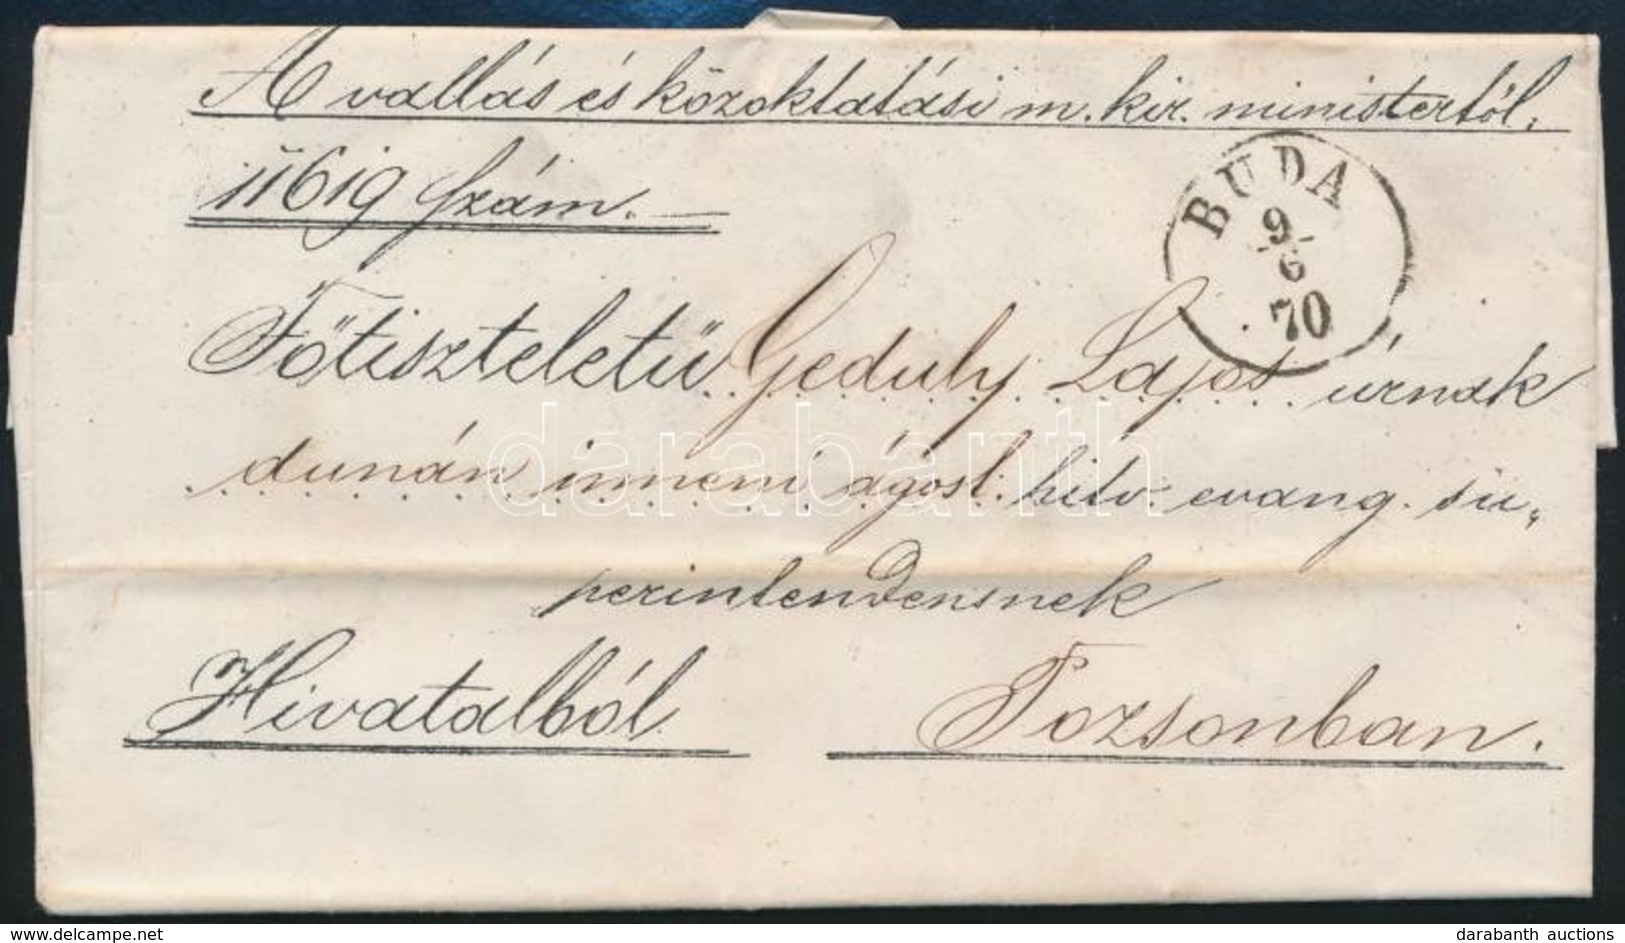 A vallás és közoktatási m. kir. ministertől.
11619 szám.
BUDA
9
6
70
Főtiszteletű Geduly Lajos úrnak
dunán inneni ágost. hitv. evang. su„
perintendensnek
Hivatalból
Pozsonban.
darabanth
www.delcampe.net
darabanth auctions